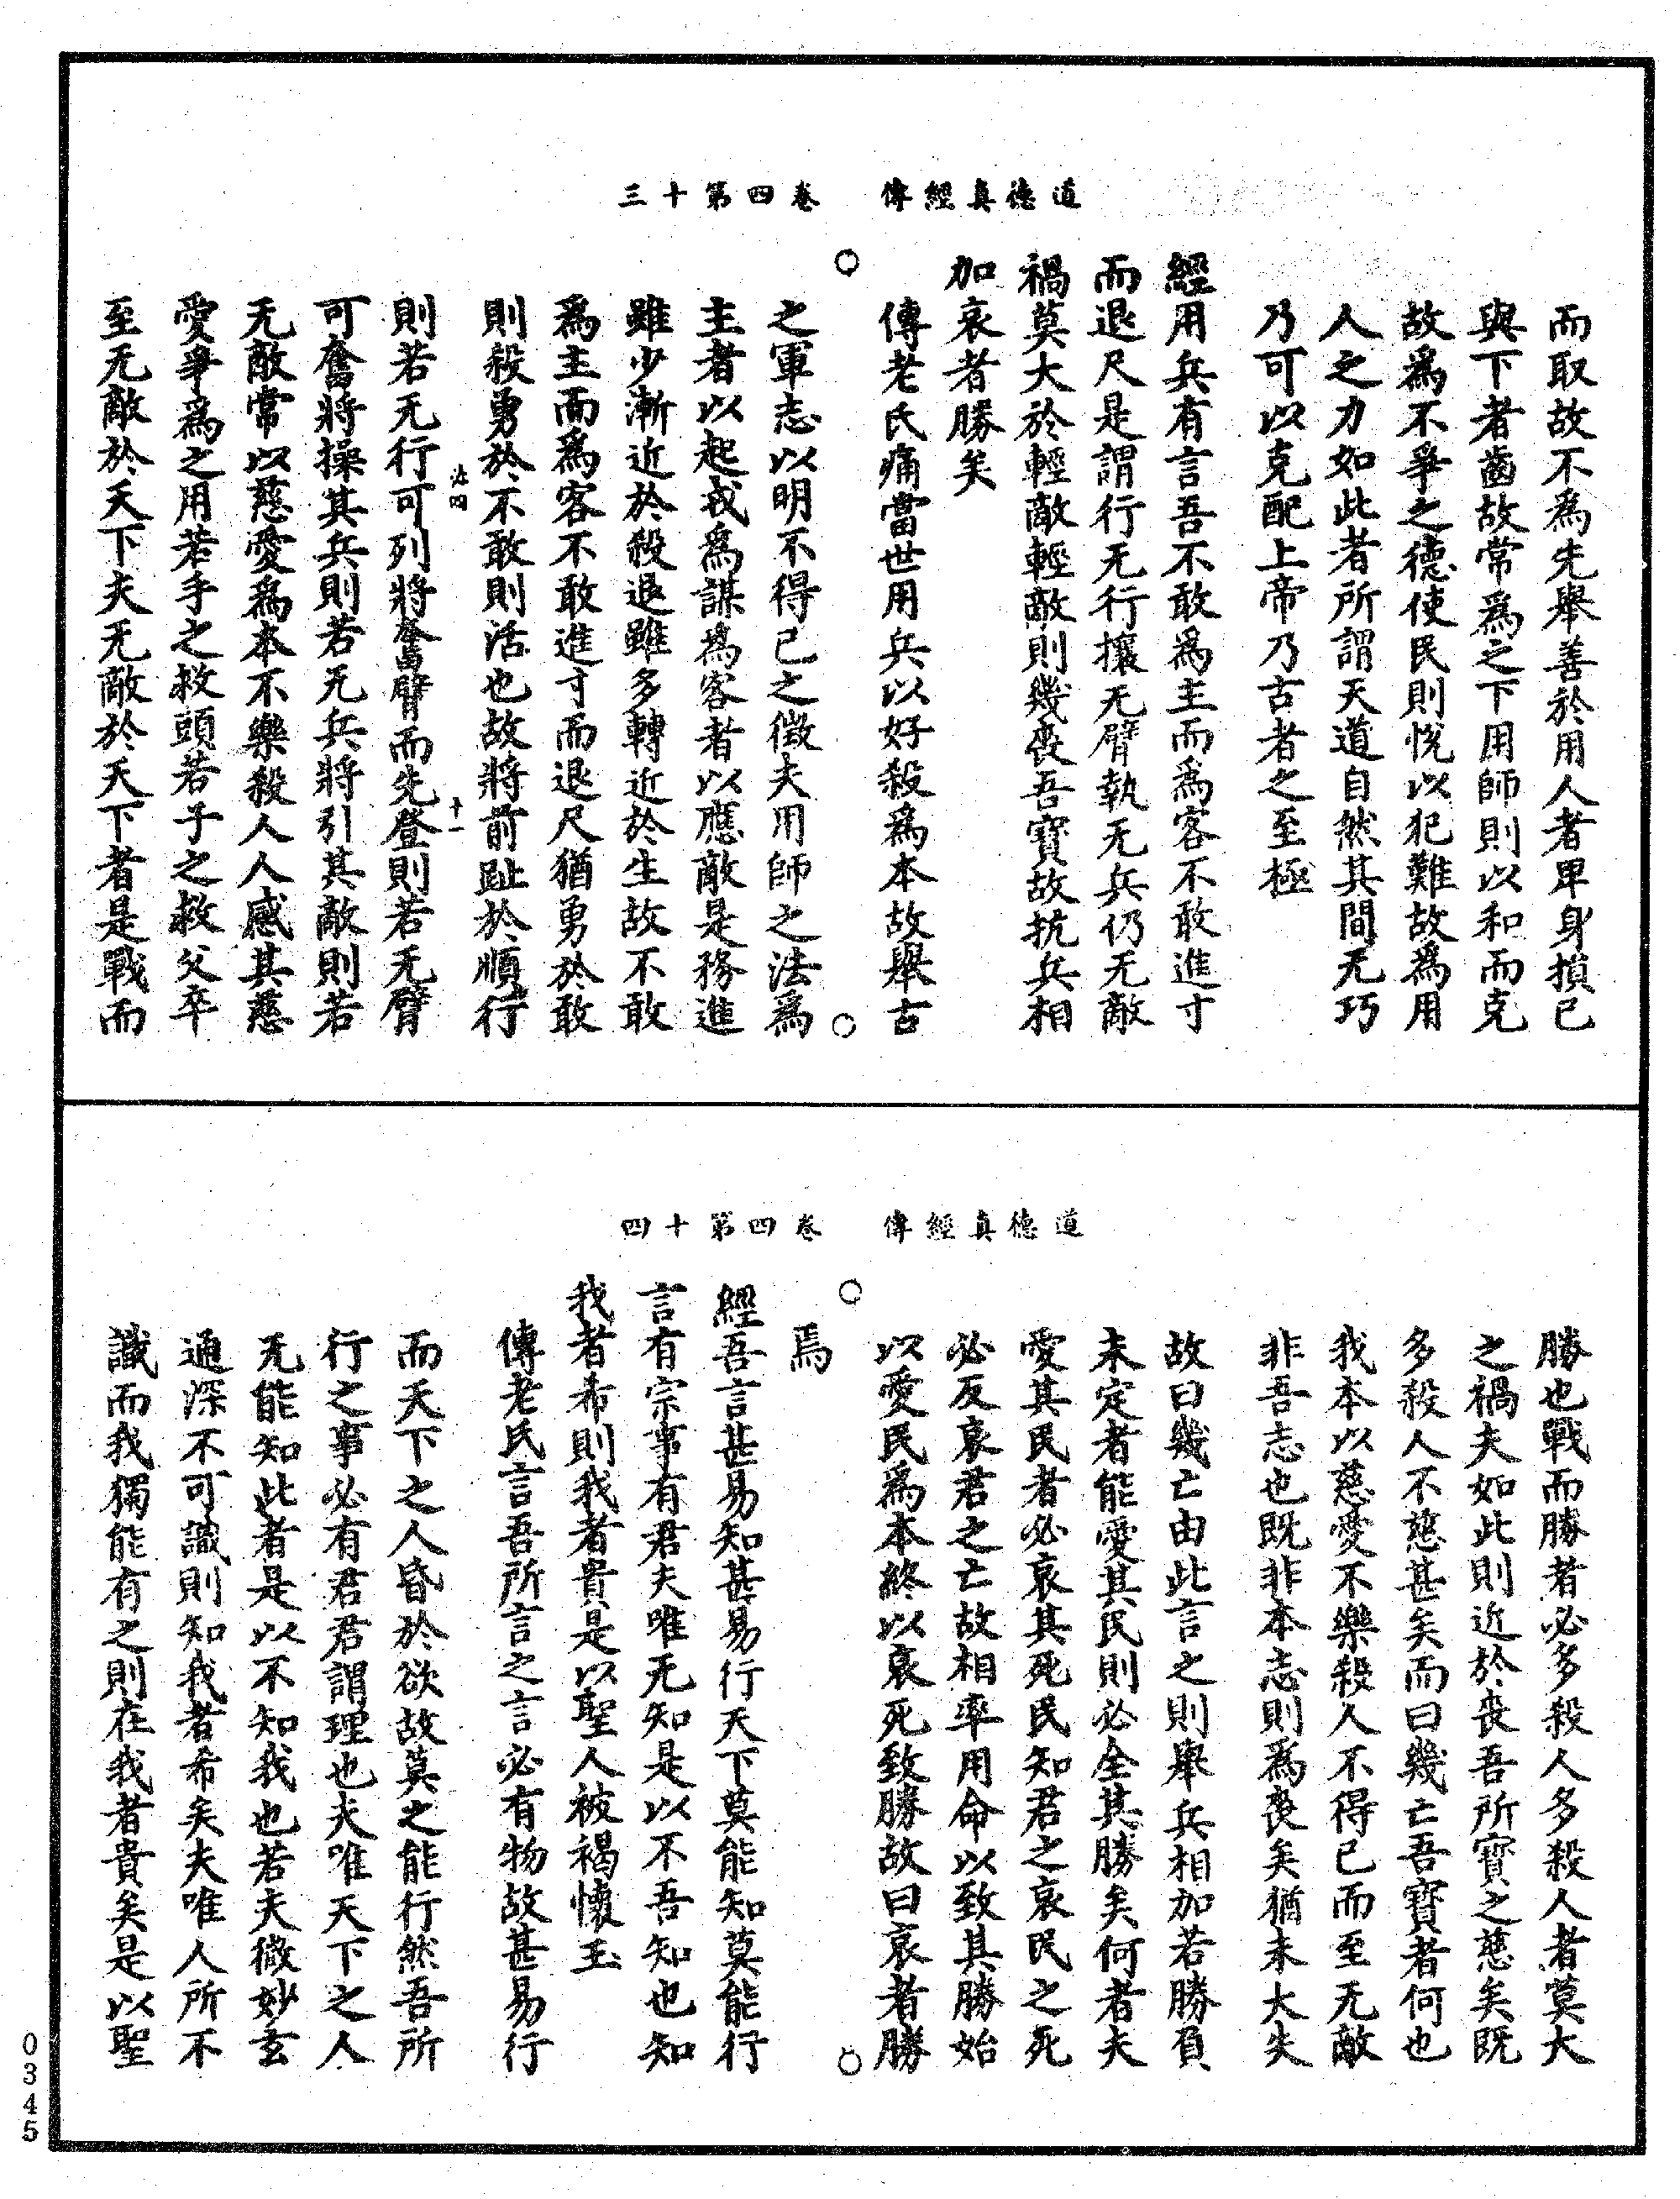 道德真經傳　卷四第十三
而取故不爲先舉善於用人者卑身損已
與下者齒故常爲之下用師則以和而克
故爲不爭之德使民則悅以犯難故爲用
人之力如此者所謂天道自然其間无巧
乃可以克配上帝乃古者之至極
經用兵有言吾不敢爲主而爲客不敢進寸
而退尺是謂行无行攘无臂執无兵仍无敵
禍莫大於輕敵輕敵則幾喪吾寶故抗兵相
加哀者勝矣
傳老氏痛當世用兵以好殺爲本故舉古
之軍志以明不得已之徵夫用師之法爲
主者以起戎爲謀爲客者以應敵是務進
雖少漸近於殺退雖多轉近於生故不敢
爲主而爲客不敢進寸而退尺猶勇於敢
則殺勇於不敢則活也故將前趾於順行
十一
則若无行可列將奮臂而先登則若无臂
可奮將操其兵則若无兵將引其敵則若
无敵常以慈愛爲本不樂殺人人感其慈
愛爭爲之用若手之救頭若子之救父卒
至无敵於天下夫无敵於天下者是戰而
道德真經傳　卷四第十四
勝也戰而勝者必多殺人多殺人者莫大
之禍夫如此則近於喪吾所寶之慈矣既
多殺人不慈甚矣而曰幾亡吾寶者何也
我本以慈愛不樂殺人不得已而至无敵
非吾志也既非本志則爲喪矣猶未大失
故曰幾亡由此言之則舉兵相加若勝負
未定者能愛其民則必全其勝矣何者夫
愛其民者必哀其死民知君之哀民之死
必反哀君之亡故相率用命以致其勝始
以愛民爲本終以哀死致勝故曰哀者勝
焉
經吾言甚易知甚易行天下莫能知莫能行
言有宗事有君夫唯无知是以不吾知也知
我者希則我者貴是以聖人被褐懷玉
傳老氏言吾所言之言必有物故甚易行
而天下之人昏於欲故莫之能行然吾所
行之事必有君君謂理也夫唯天下之人
无能知此者是以不知我也若夫微妙玄
通深不可識則知我者希矣夫唯人所不
識而我獨能有之則在我者貴矣是以聖
0345